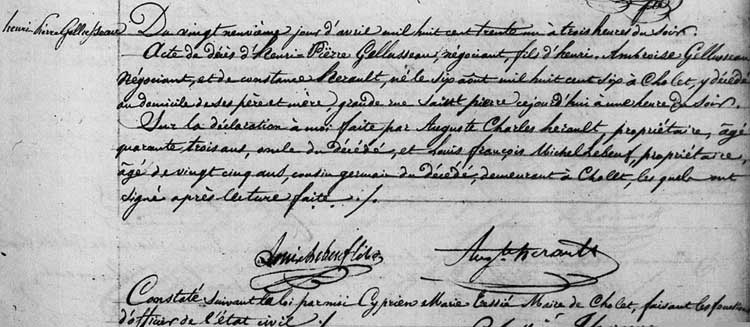 henri Pierre Gellusseau
Du vingt neuvième jour d'avril mil huit cent trente un à trois heures du Soir.
Acte de décès d'henri-Pierre Gellusseau, négociant, fils d'henri-Ambroise Gellusseau
négociant, et de constance herault, né le Six août mil huit cent Six à Cholet, y décédé
au domicile de ses père et mère, grande rue Saint pierre cejourd'hui à une heure du Soir.
Sur la déclaration à moi faite par Auguste Charles herault, propriétaire, âgé
quarante trois ans, oncle du décédé, et Louis françois Michel lebeuf, propriétaire,
âgé de vingt cinq ans, cousin germain du décédé, demeurant à Cholet, les quels ont
Signé après lecture faite ./.
Aug.te herault
Constaté Suivant la loi par moi Cyprien Marie Maire de Cholet, faisant les fonctions
d'officier de l'état civil ./.